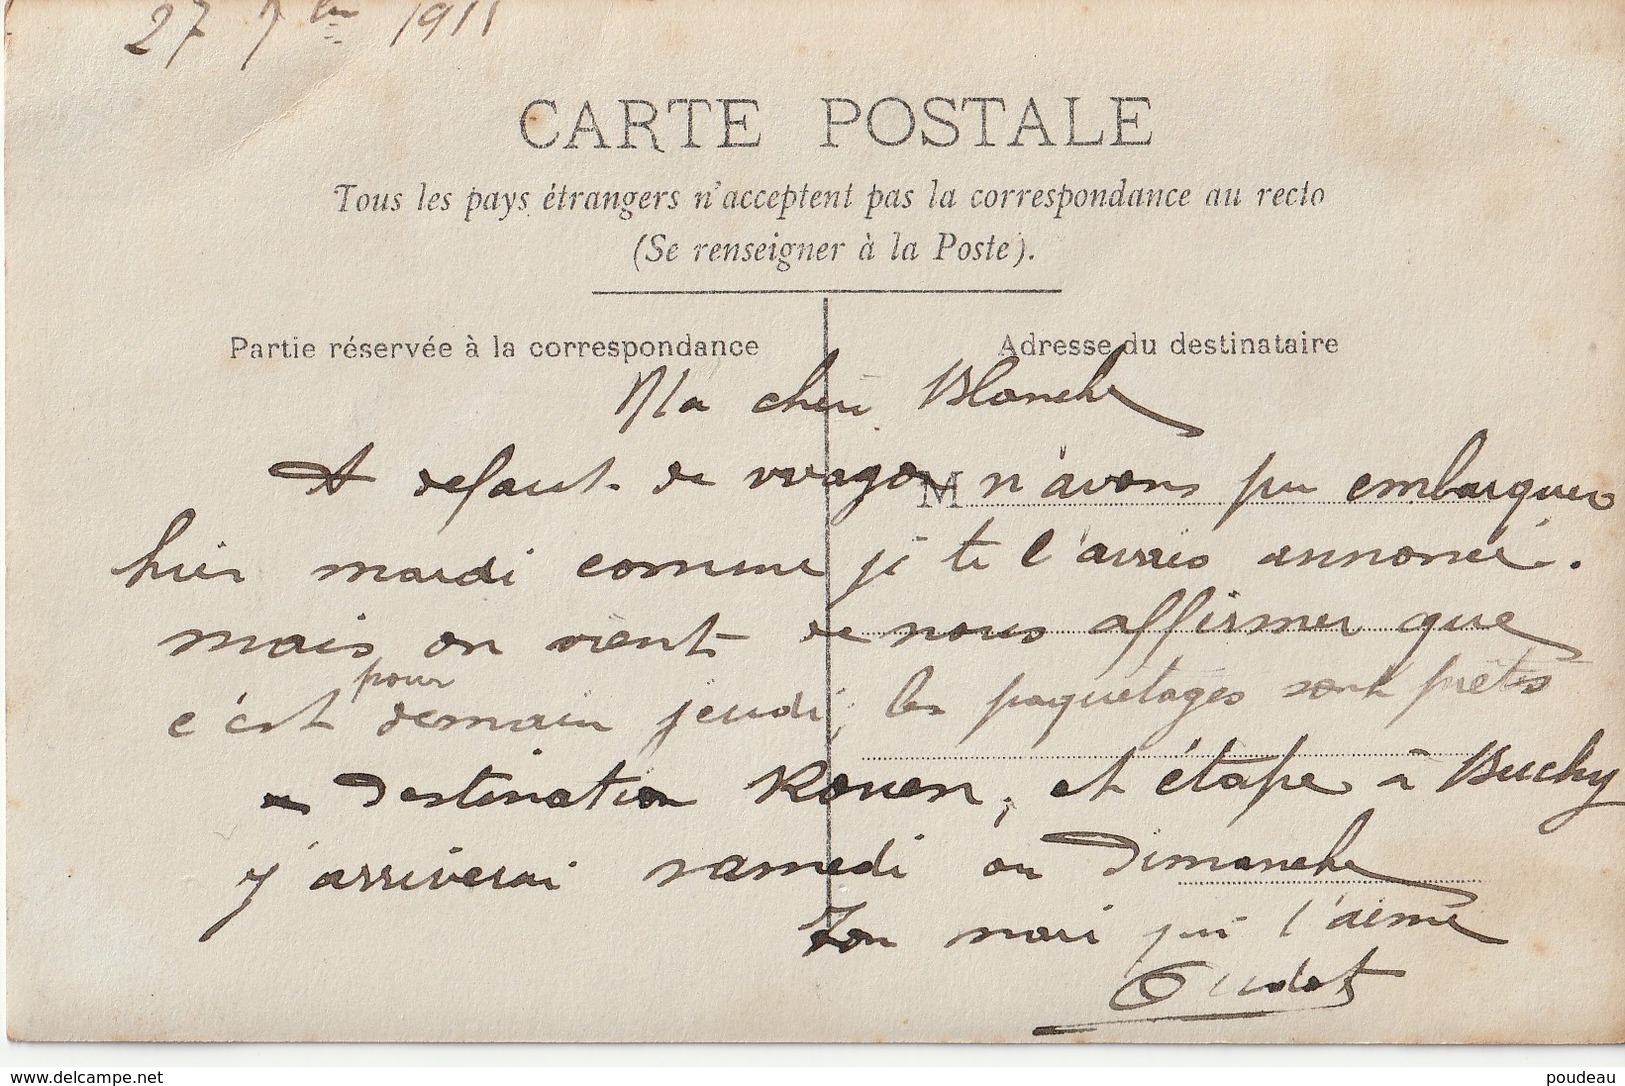 27 7bre 1911
CARTE POSTALE
Tous les pays étrangers n'acceptent pas la correspondance au recto
(Se renseigner à la Poste).
Partie réservée à la correspondance
Adresse du destinataire
Ma chère Blanche
M
A defaut de wagon n'avons pu embarquer
hier mardi comme je te l'avais annoncé.
mais on vient de nous affirmer que
c'est pour demain jeudi, les paquetages sont prêts
destination Rouen, et étape à Buchy
j'arriverai samedi ou Dimanche
Ton mari qui t'aime
Oudot
www.delcampe.net
poudeau